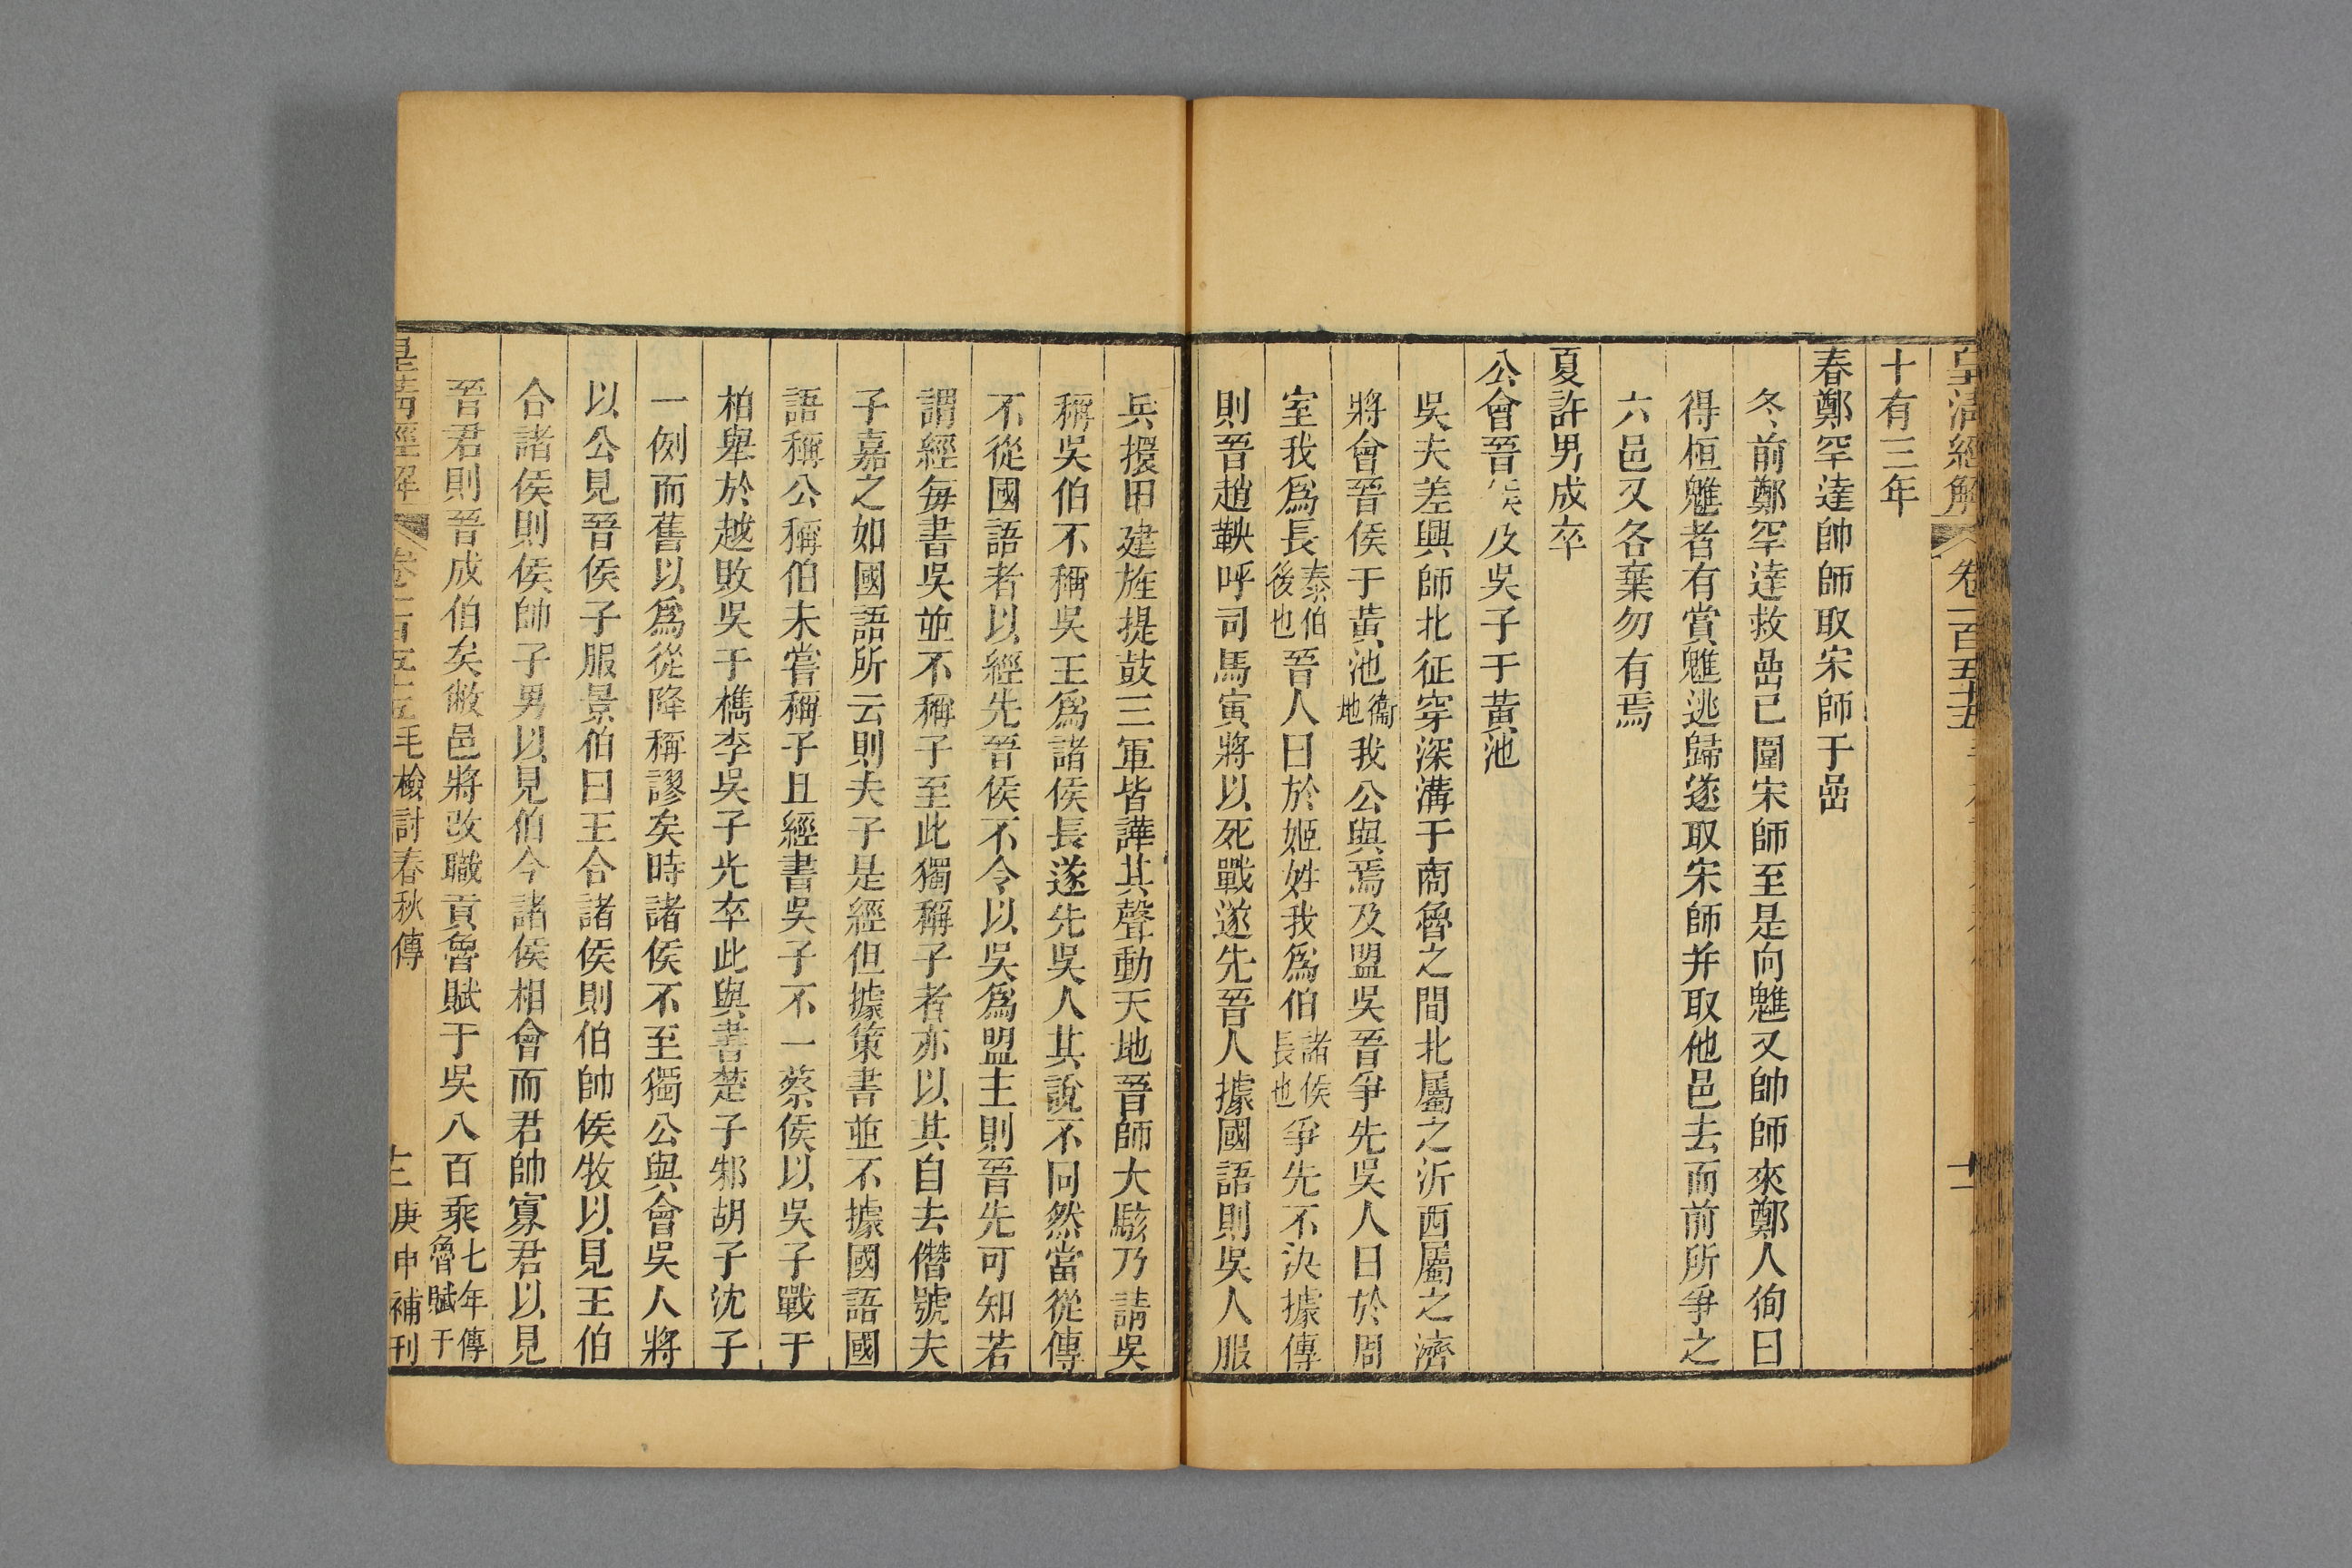 皇清經解 卷一百五十五 十二
十有三年
春鄭罕達帥師取宋師于嵒
冬前鄭罕達救嵒已圍宋師至是向魋又帥師來鄭人徇曰
得桓魋者有賞魋逃歸遂取宋師并取他邑去而前所爭之
六邑又各棄勿有焉
夏許男成卒
公會晉侯及吳子于黃池
吳夫差興師北征穿深溝于商魯之間北屬之沂西屬之濟
將會晉侯于黃池衞地我公與焉及盟吳晉爭先吳人曰於周
室我爲長泰伯後也晉人曰於姬姓我爲伯諸侯長也爭先不決據傳
則晉趙鞅呼司馬寅將以死戰遂先晉人據國語則吳人服
兵擐甲建旌提鼓三軍皆譁其聲動天地晉師大駭乃請吳
稱吳伯不稱吳王爲諸侯長遂先吳人其說不同然當從傳
不從國語者以經先晉侯不令以吳爲盟主則晉先可知若
謂經每書吳並不稱子至此獨稱子者亦以其自去僭號夫
子嘉之如國語所云則夫子是經但據策書並不據國語國
語稱公稱伯未嘗稱子且經書吳子不一蔡侯以吳子戰于
柏舉於越敗吳于檇李吳子光卒此與書楚子邾胡子沈子
一例而舊以爲從降稱謬矣時諸侯不至獨公與會吳人將
以公見晉侯子服景伯曰王合諸侯則伯帥侯牧以見王伯
合諸侯則侯帥子男以見伯今諸侯相會而君帥寡君以見
晉君則晉成伯矣敝邑將改職貢魯賦于吳八百乘七年傳魯賦于
皇清經解 卷一百五十五毛檢討春秋傳 十三 庚申補刊